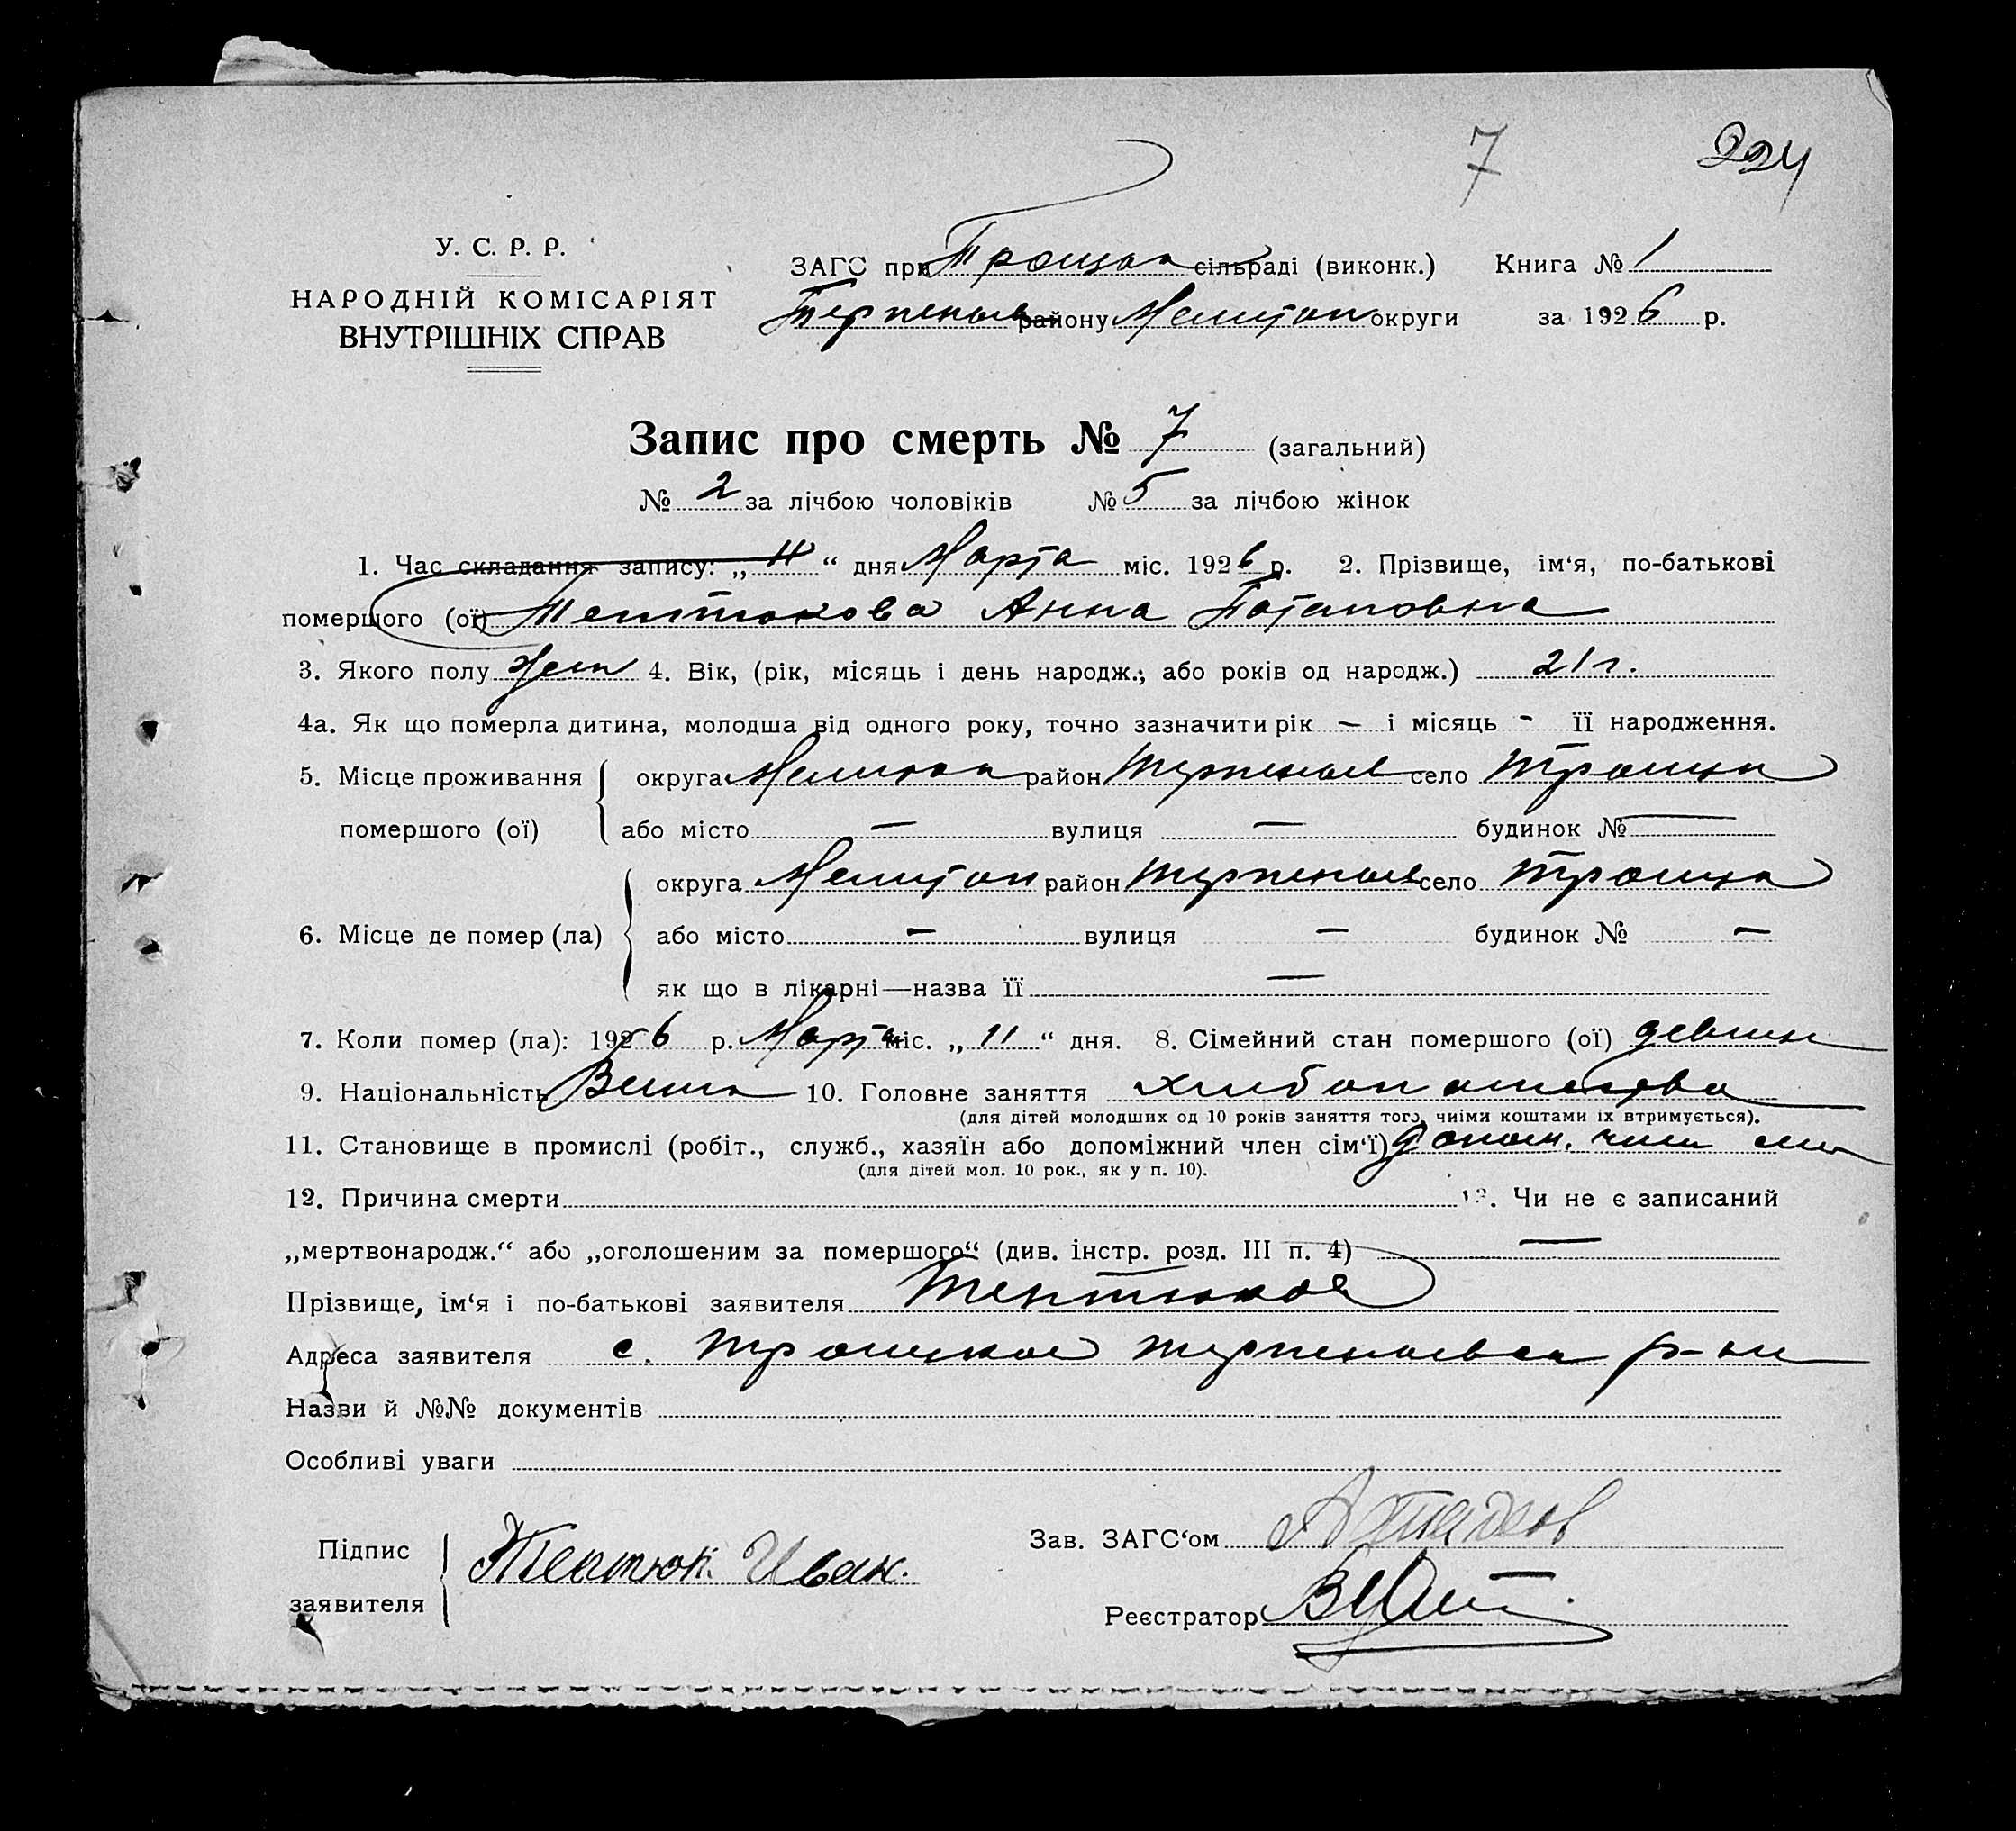 7 224
У. С. Р. Р.
НАРОДНІЙ КОМІСАРІЯТ
ВНУТРІШНІХ СПРАВ
ЗАГС при Троцком сільраді (виконк.) Книга № 1
Терпеньев району Мелитоп округи за 1926 р.
Запис про смерть № 7 (загальний)
№ 2 за лічбою чоловіків № 5 за лічбою жінок
1. Час складання запису: „ 11 “ дня Марта міс. 1926 р. 2. Прізвище, ім‘я, по-батькові
помершого (ої) Тептюкова Анна Потаповна
3. Якого полу жен 4. Вік, (рік, місяць і день народж.; або років од народж.) 21 г.
4а. Як що померла дитина, молодша від одного року, точно зазначити рік — і місяць - її народження.
5. Місце проживання округа Мелитоп район Терпеньев село Троицк
помершого (ої) або місто — вулиця — будинок № —
округа Мелитоп район Терпеньев село Троицк
6. Місце де помер (ла) або місто — вулиця — будинок № —
як що в лікарні—назва її —
7. Коли помер (ла): 1926 р. Марта міс. „ 11 “ дня. 8. Сімейний стан помершого (ої)
9. Національність 10. Головне заняття хлибопашества
(для дітей молодших од 10 років заняття того, чиїми коштами їх втримується).
11. Становище в промислі (робіт., служб., хазяїн або допоміжний член сім‘ї) допом. член
(для дітей мол. 10 рок., як у п. 10).
12. Причина смерти 13. Чи не є записаний
„мертвонародж.“ або „оголошеним за помершого“ (див. інстр. розд. III п. 4) —
Прізвище, ім‘я і по-батькові заявителя Тептюков
Адреса заявителя с. Троицкое Терпеньевск р-на
Назви й №№ документів
Особливі уваги
Підпис
заявителя Тептюк Иван.
Зав. ЗАГС‘ом
Реєстратор